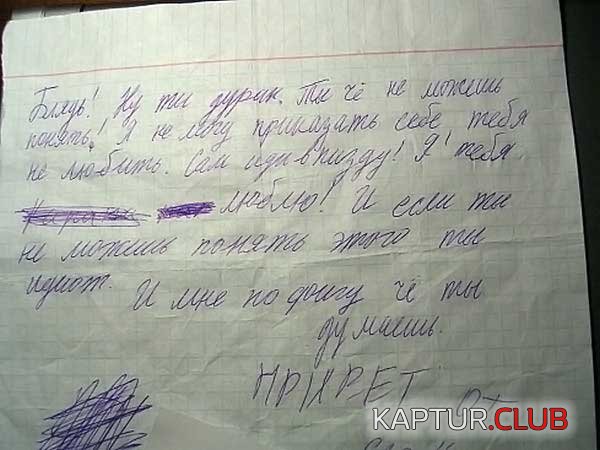 Блядь! Ну ты дурак. Ты чё не можешь
понять! Я не могу приказать себе тебя
не любить. Сам иди в пизду! Я тебя
люблю! И если ты
не можешь понять этого ты
идиот.
И мне по фигу чё ты
думаешь.
ПРИВЕТ
от
KAPTUR.CLUB